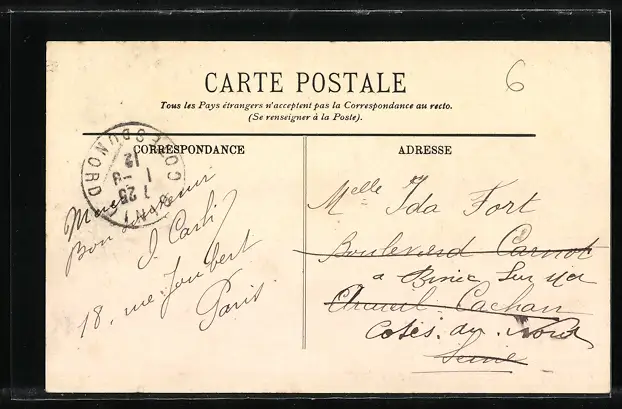 CARTE POSTALE
Tous les Pays étrangers n'acceptent pas la Correspondance au recto.
(Se renseigner à la Poste).
6
CORRESPONDANCE
COTES DU NORD
7 25
1 -8
12
Bon souvenir
J. Carli
18, rue Joubert
Paris
ADRESSE
Melle Ida Fort
Boulevard Carnot
a Binic Sur Mer
Arcueil Cachan
Cotes. du. Nord
Seine